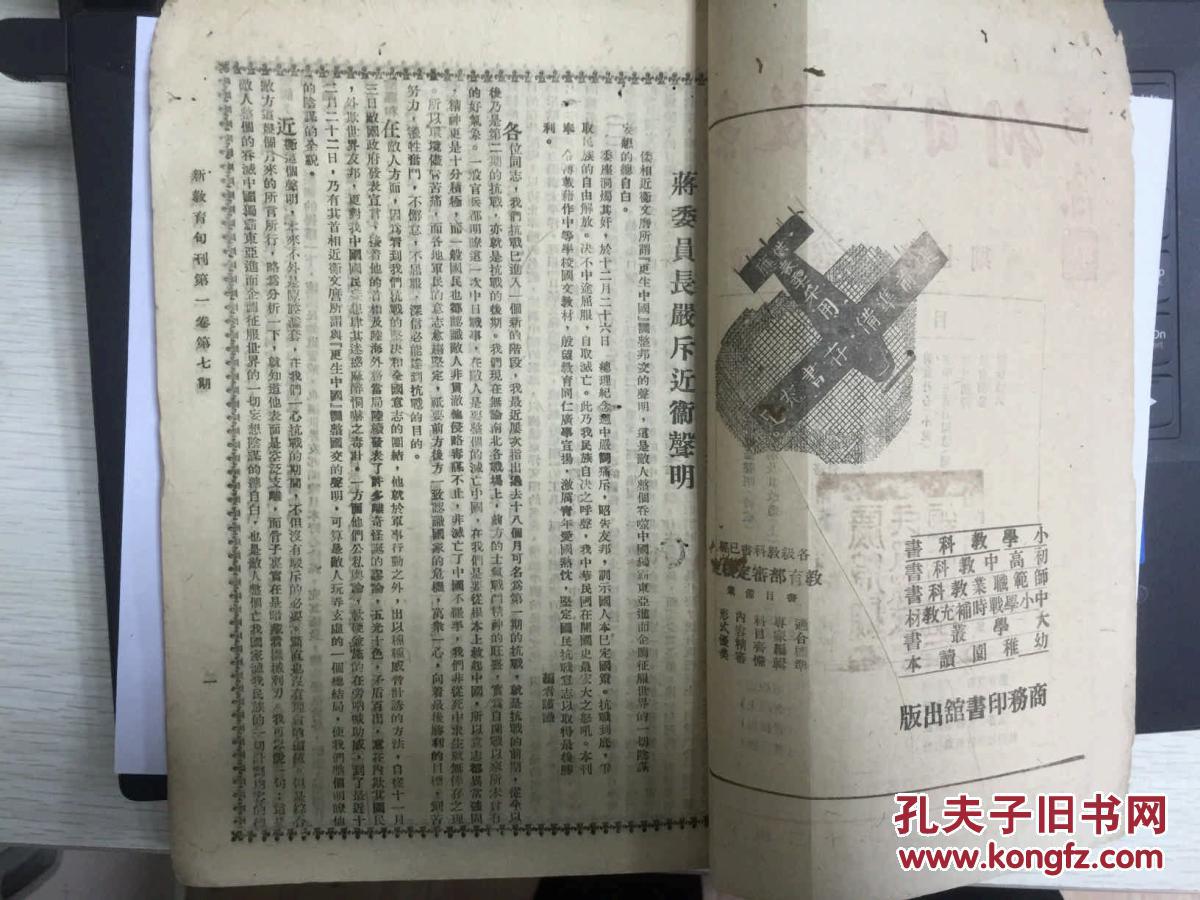 小學教科書
初高中教科書
師範職業教科書
中小學戰時補充教材
大學叢書
幼稚園讀本
各級教科書已經
教育部審定
書目備索
適合標準
專家編輯
科目齊備
內容精審
形式優美
商務印書舘出版
蔣委員長嚴斥近衞聲明
倭相近衞文麿所謂『更生中國』調整邦交的聲明，這是敵人整個吞噬中國獨霸東亞進而企圖征服世界的一切陰謀
妄想的總自白。
委座洞燭其奸，於十二月二十六日　總理紀念週中嚴詞痛斥，昭告友邦，訓示國人本已定國策。抗戰到底，爭
取民族的自由解放。決不中途屈服，自取滅亡。此乃我民族自決之呼聲，我中華民國在開國史最宏大之怒吼。本刊
奉　令轉載藉作中等學校國文教材，般望教育同仁廣爭宣揚，激厲青年愛國熱忱，堅定國民抗戰意志以取得最後勝
利。
編者謹識
各位同志，我們抗戰已進入一個新的階段，我最近屢次指出過去十八個月可名爲第一期的抗戰，就是抗戰的前期，從今以
後乃是第二期的抗戰，亦就是抗戰的後期。我們現在無論南北各戰場上，前方的士氣戰鬥精神的旺盛，實爲自開戰以來所未曾有
的好氣象。一般官兵都明瞭這一次中日戰事，在敵人是要整個的滅亡中國，在我們是要從根本上救起中國，所以意志都異常強固
，精神更是十分積極，而一般國民也都認識敵人非貫澈他侵略毒謀不止，非滅亡了中國不罷手，我們非從死中求生就無倖存之理
。所以環境儘管苦痛，而各地軍民的意志愈趨堅定，祗要前方後方一致認識國家的危機，萬衆一心，向着最後勝利的目標，刻苦
努力，犧牲奮鬥，不懈怠，不屈服，深信必能達到抗戰的目的。
在敵人方面，因爲看到我們抗戰的堅決和全國意志的團結，他就於軍事行動之外，出以種種威脅計誘的方法，自從十一月
三日敵國政府發表宣言，接着他的首相及陸海外務當局陸續發表了許多離奇怪誕的謬論，五光十色，矛盾百出，意在內欺其國民
，外欺世界友邦，更對我中國國民妄想肆其迷惑麻醉恫嚇之毒計。一方面他們公私輿論，軟硬兼施的在旁吶喊助威，到了最近十
二月二十二日，乃有其首相近衞文麿所謂與『更生中國』調整國交的聲明，可算是敵人玩弄玄虛的一個總結局，使我們整個明瞭他
的陰謀的全貌。
近衞這個聲明，本來不外是陳腔濫套，在我們一心抗戰的期間，不但沒有駁斥的必要，簡直也沒有理會的價值，但是綜合
敵方這幾個月來的所言所行，略爲分析一下，就知道他表面是空泛支離，而骨子裏實在是暗藏着機械利刃，我再總說一句：這是
敵人整個的吞滅中國獨霸東亞進而企圖征服世界的一切妄想陰謀的總自白，也是敵人整個亡我國家滅我民族的一切計劃內容的
新教育旬刊第一卷第七期
一
孔夫子旧书网
www.kongfz.com